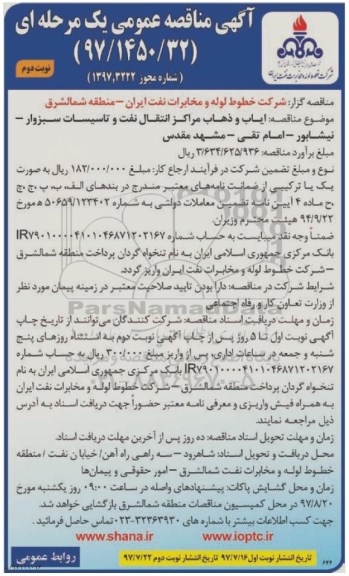 آگهی مناقصه عمومی یک مرحله ای
(۹۷/۱۴۵۰/۳۲)
(شماره مجوز ۱۳۹۷,۳۲۲۲)
نوبت دوم
شرکت خطوط لوله و مخابرات نفت ایران
مناقصه گزار: شرکت خطوط لوله و مخابرات نفت ایران – منطقه شمالشرق
موضوع مناقصه: ایاب و ذهاب مراکز انتقال نفت و تاسیسات سبزوار –
نیشابور – امام تقی – مشهد مقدس
مبلغ برآورد مناقصه: ۳/۶۳۴/۶۲۵/۹۳۶ ریال
نوع و مبلغ تضمین شرکت در فرآیند ارجاع کار: مبلغ ۱۸۲/۰۰۰/۰۰۰ ریال به صورت
یک یا ترکیبی از ضمانت نامه‌های معتبر مندرج در بندهای الف، ب، پ، ج، چ
،ح ماده ۴ آیین نامه تضمین معاملات دولتی به شماره ۱۲۳۴۰۲/ت۵۰۶۵۹ ه مورخ
۹۴/۹/۲۲ هیئت محترم وزیران.
ضمناً وجه نقد میبایست به حساب شماره IR۷۹۰۱۰۰۰۰۴۱۰۱۰۴۶۸۷۱۲۰۲۱۶۷
بانک مرکزی جمهوری اسلامی ایران به نام تنخواه گردان پرداخت منطقه شمالشرق
– شرکت خطوط لوله و مخابرات نفت ایران واریز گردد.
شرایط شرکت در مناقصه: دارا بودن تایید صلاحیت معتبر در زمینه پیمان مورد نظر
از وزارت تعاون کار و رفاه اجتماعی
زمان و مهلت دریافت اسناد مناقصه: شرکت کنندگان می‌توانند از تاریخ چاپ
آگهی نوبت اول تا ۵ روز پس از چاپ آگهی نوبت دوم به استثناء روزهای پنج
شنبه و جمعه در ساعات اداری، پس از واریز مبلغ ۳۰۰/۰۰۰ ریال به حساب شماره
IR۷۹۰۱۰۰۰۰۴۱۰۱۰۴۶۸۷۱۲۰۲۱۶۷ بانک مرکزی جمهوری اسلامی ایران به نام
تنخواه گردان پرداخت منطقه شمالشرق – شرکت خطوط لوله و مخابرات نفت ایران
به همراه فیش واریزی و معرفی نامه معتبر حضوراً جهت دریافت اسناد به آدرس
ذیل مراجعه نمایند.
زمان و مهلت تحویل اسناد مناقصه: ده روز پس از آخرین مهلت دریافت اسناد
محل دریافت و تحویل اسناد: شاهرود – سه راهی راه آهن/ خیابان نفت / منطقه
خطوط لوله و مخابرات نفت شمالشرق – امور حقوقی و پیمان‌ها
زمان و محل گشایش پاکات: پیشنهادهای واصله در ساعت ۰۹:۰۰ روز یکشنبه مورخ
۹۷/۸/۲۰ در محل کمیسیون مناقصات منطقه شمالشرق بازگشایی خواهد شد.
جهت کسب اطلاعات بیشتر با شماره های ۳۲۳۶۳۹۳۰-۰۲۳ تماس حاصل فرمائید.
www.shana.ir www.ioptc.ir
تاریخ انتشار نوبت اول ۹۷/۷/۱۶ تاریخ انتشار نوبت دوم ۹۷/۷/۲۲
روابط عمومی